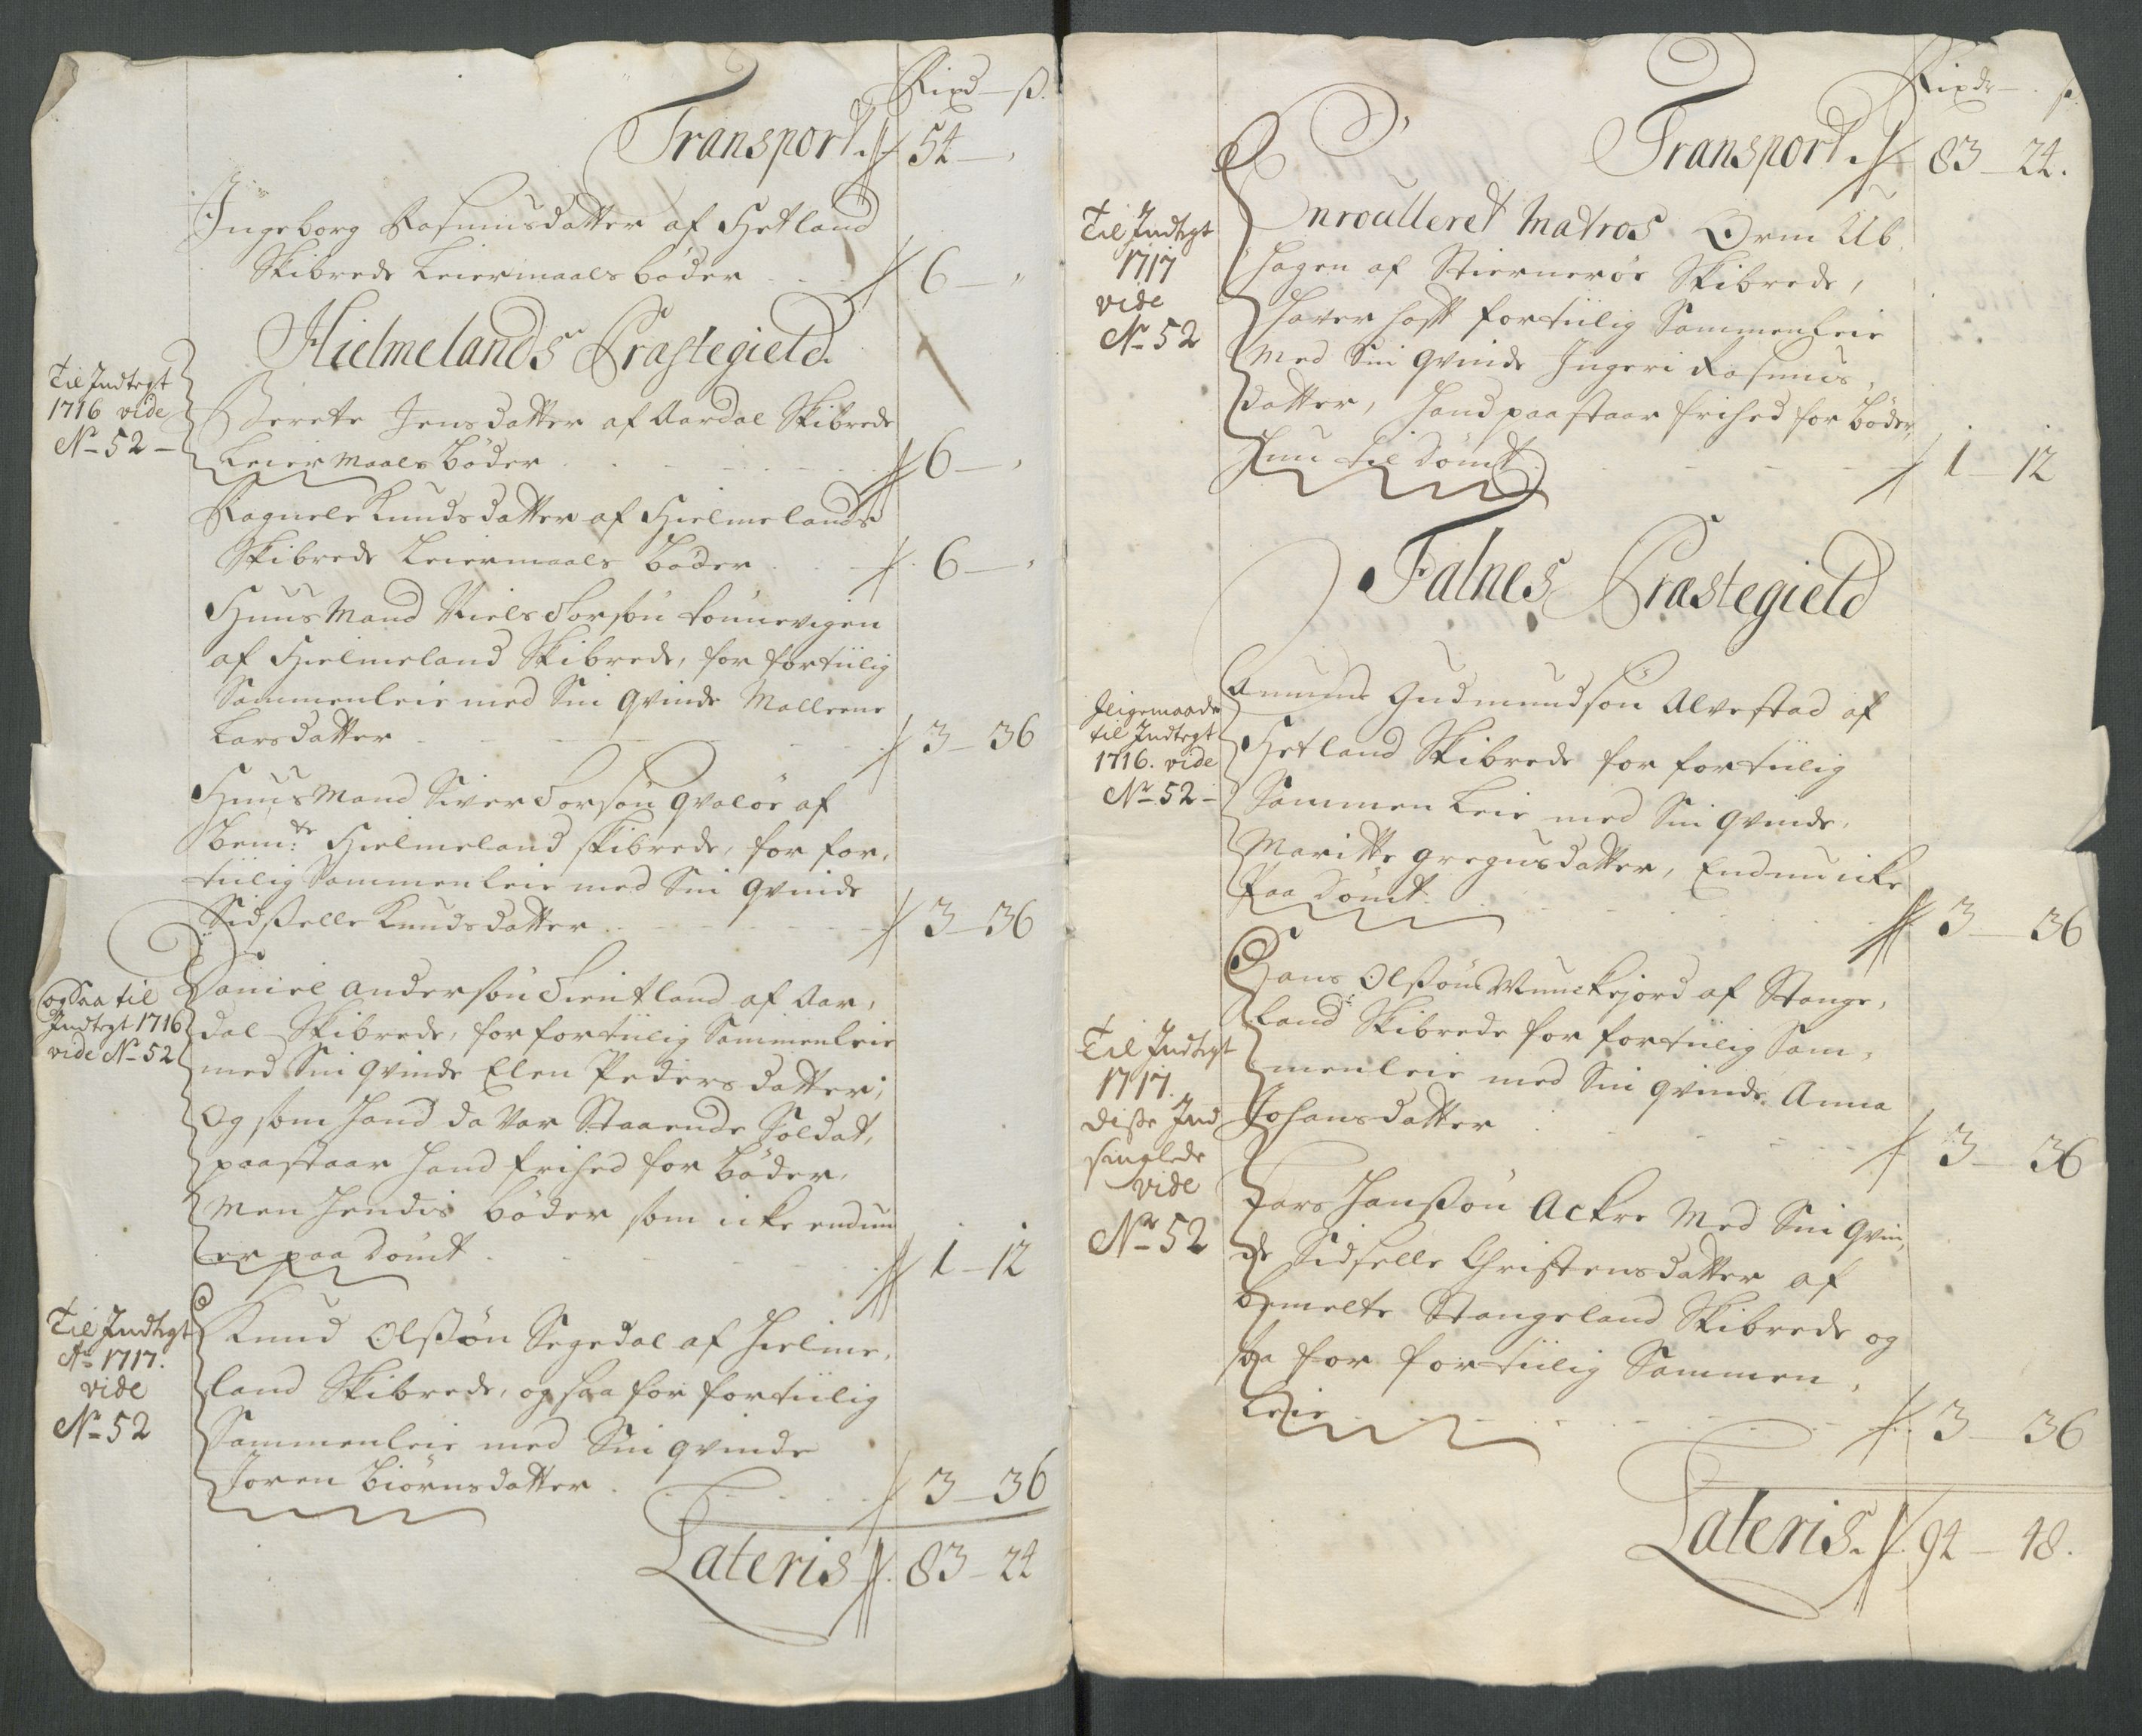 Rixd — ß.
Transport. 54 — ,
Ingeborg Rasmusdatter af Hetland
Skibrede Leiermaals bøder . . . 6 — ,
Hielmelands Præstegield.
Til Indtegt
1716 vide
No 52 —
Berete Jensdatter af Aardal Skibrede
Leiermaals bøder . . . 6 — ,
Ragnele Knudsdatter af Hielmelands
Skibrede Leiermaals bøder . . . 6 — ,
Huusmand Niels Torsøn
af Hielmeland Skibrede, for fortiilig
Sammenleie med Sin qvinde Malleene
Larsdatter . . . 3 — 36
Huusmand Siver Torsøn Qvaløe af
bemte: Hielmeland skibrede, for for,
tiilig Sammenleie med Sin qvinde
Sidsselle Knudsdatter . . . 3 — 36
ogsaa til
Indtegt 1716
vide No 52
Daniel Andersøn af Aar,
dal Skibrede, for fortiilig Sammenleie
med Sin qvinde Elen Pedersdatter;
og som hand da var Staaende Soldat,
paastaar hand frihed for bøder,
Men hendis bøder som icke endnu
er paa dømt . . . 1 — 12
Til Indtegt
Ao 1717.
vide
No 52
Knud Olssøn Segedal af Hielme,
land Skibrede, ogsaa for fortiilig
Sammenleie med Sin qvinde
Joren Biørnsdatter . . . 3 — 36
Lateris 83 — 24
Rixdr — . ß.
Transport. 83 — 24.
Til Indtegt
1717
vide
No 52
Enroulleret Matros Orm Ub,
hagen af Stiernerøe Skibrede,
haver hafft fortiilig Sammenleie
Med Sin qvinde Ingeri Rasmus,
datter, hand paastaar frihed for bøder,
hun til dømt . . . 1 — 12
Falnes Præstegield
Ligemaade
til Indtegt
1716. vide
No 52 —
Amund Gudmundsøn Alvestad af
Hetland Skibrede for fortiilig
Sammen Leie med Sin qvinde,
Maritte Gregusdatter, Endnu icke
paa dømt . . . 3 — 36
Til Indtegt
1717.
disse Ind
vide
No 52
Hans Olssøn Munckejord af Stange,
land Skibrede for fortiilig Sam,
menleie med Sin qvinde Anna
Johansdatter . . . 3 — 36
Lars Hanssøn Ackre Med Sin qvin,
de Sidselle Christensdatter af
bemelte Stangeland Skibrede og
saa for fortiilig Sammen,
Leie . . . 3 — 36
Lateris. 94 — 48.